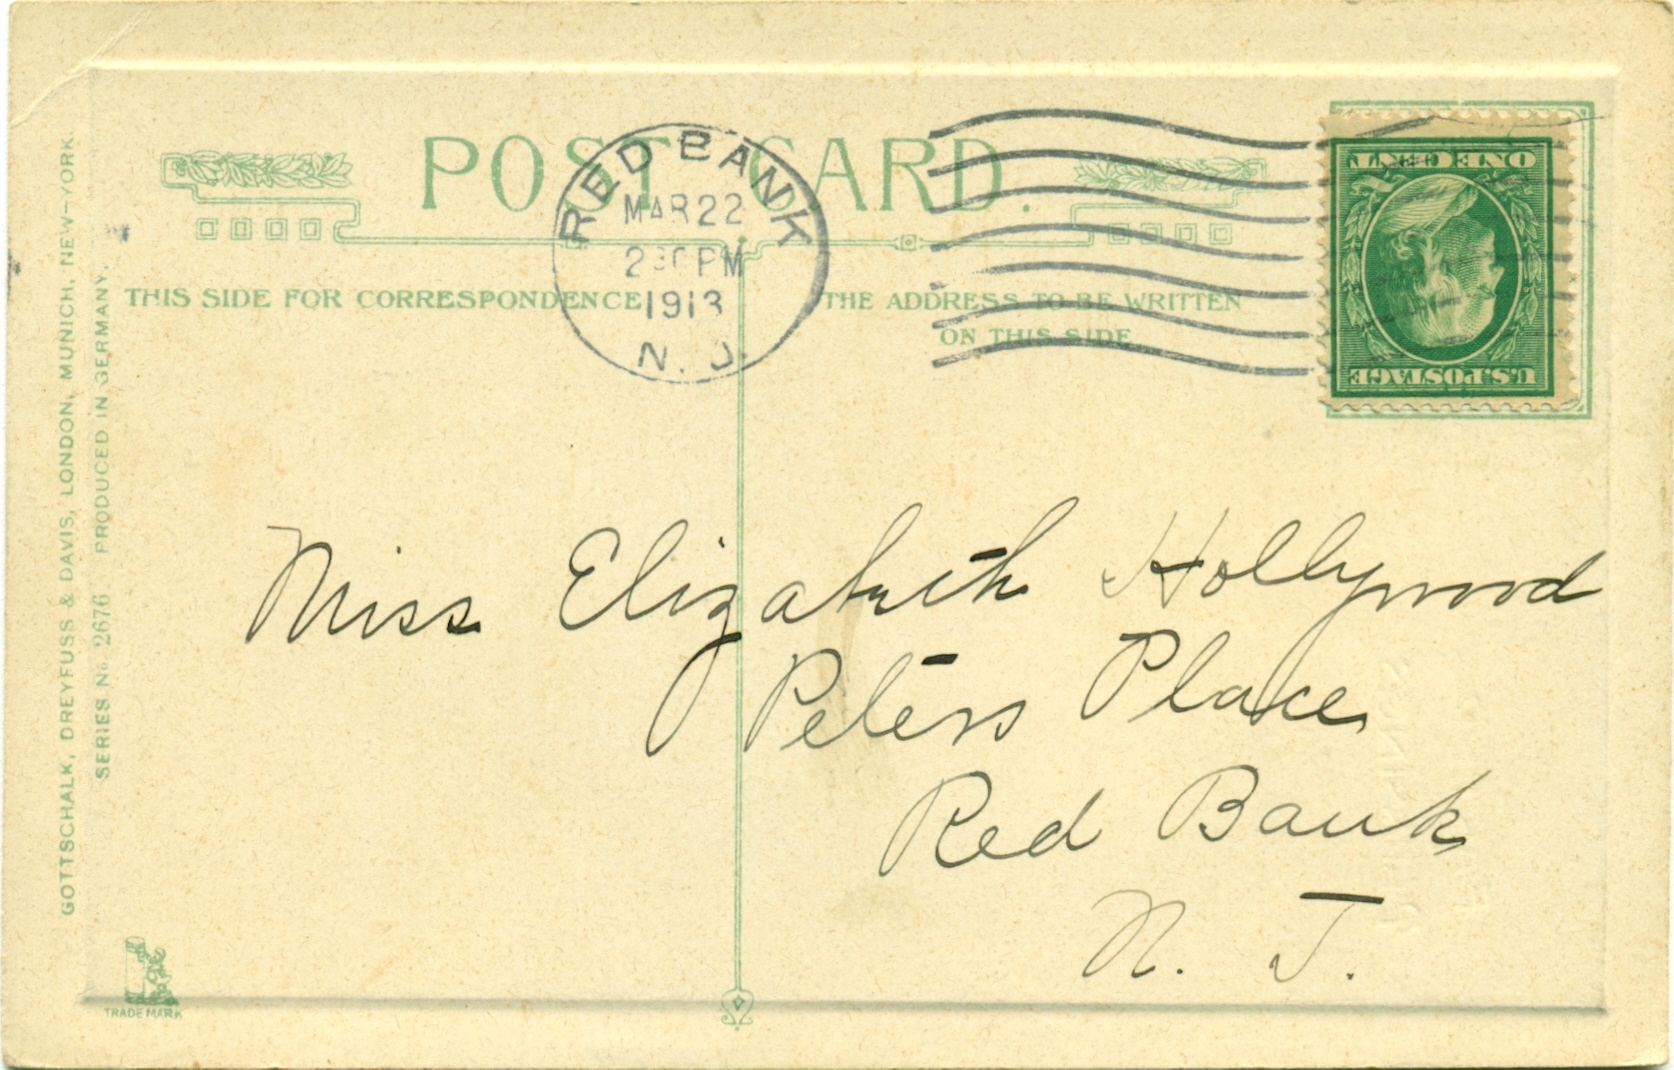 POST CARD.
RED BANK
MAR 22
2 30 PM
1913
N. J.
THIS SIDE FOR CORRESPONDENCE
THE ADDRESS TO BE WRITTEN
ON THIS SIDE
ONE CENT
U.S. POSTAGE
Miss Elizabeth Hollywood
Peters Place
Red Bank
N. J.
GOTTSCHALK, DREYFUSS & DAVIS, LONDON, MUNICH, NEW-YORK.
SERIES No 2676 PRODUCED IN GERMANY.
TRADE MARK